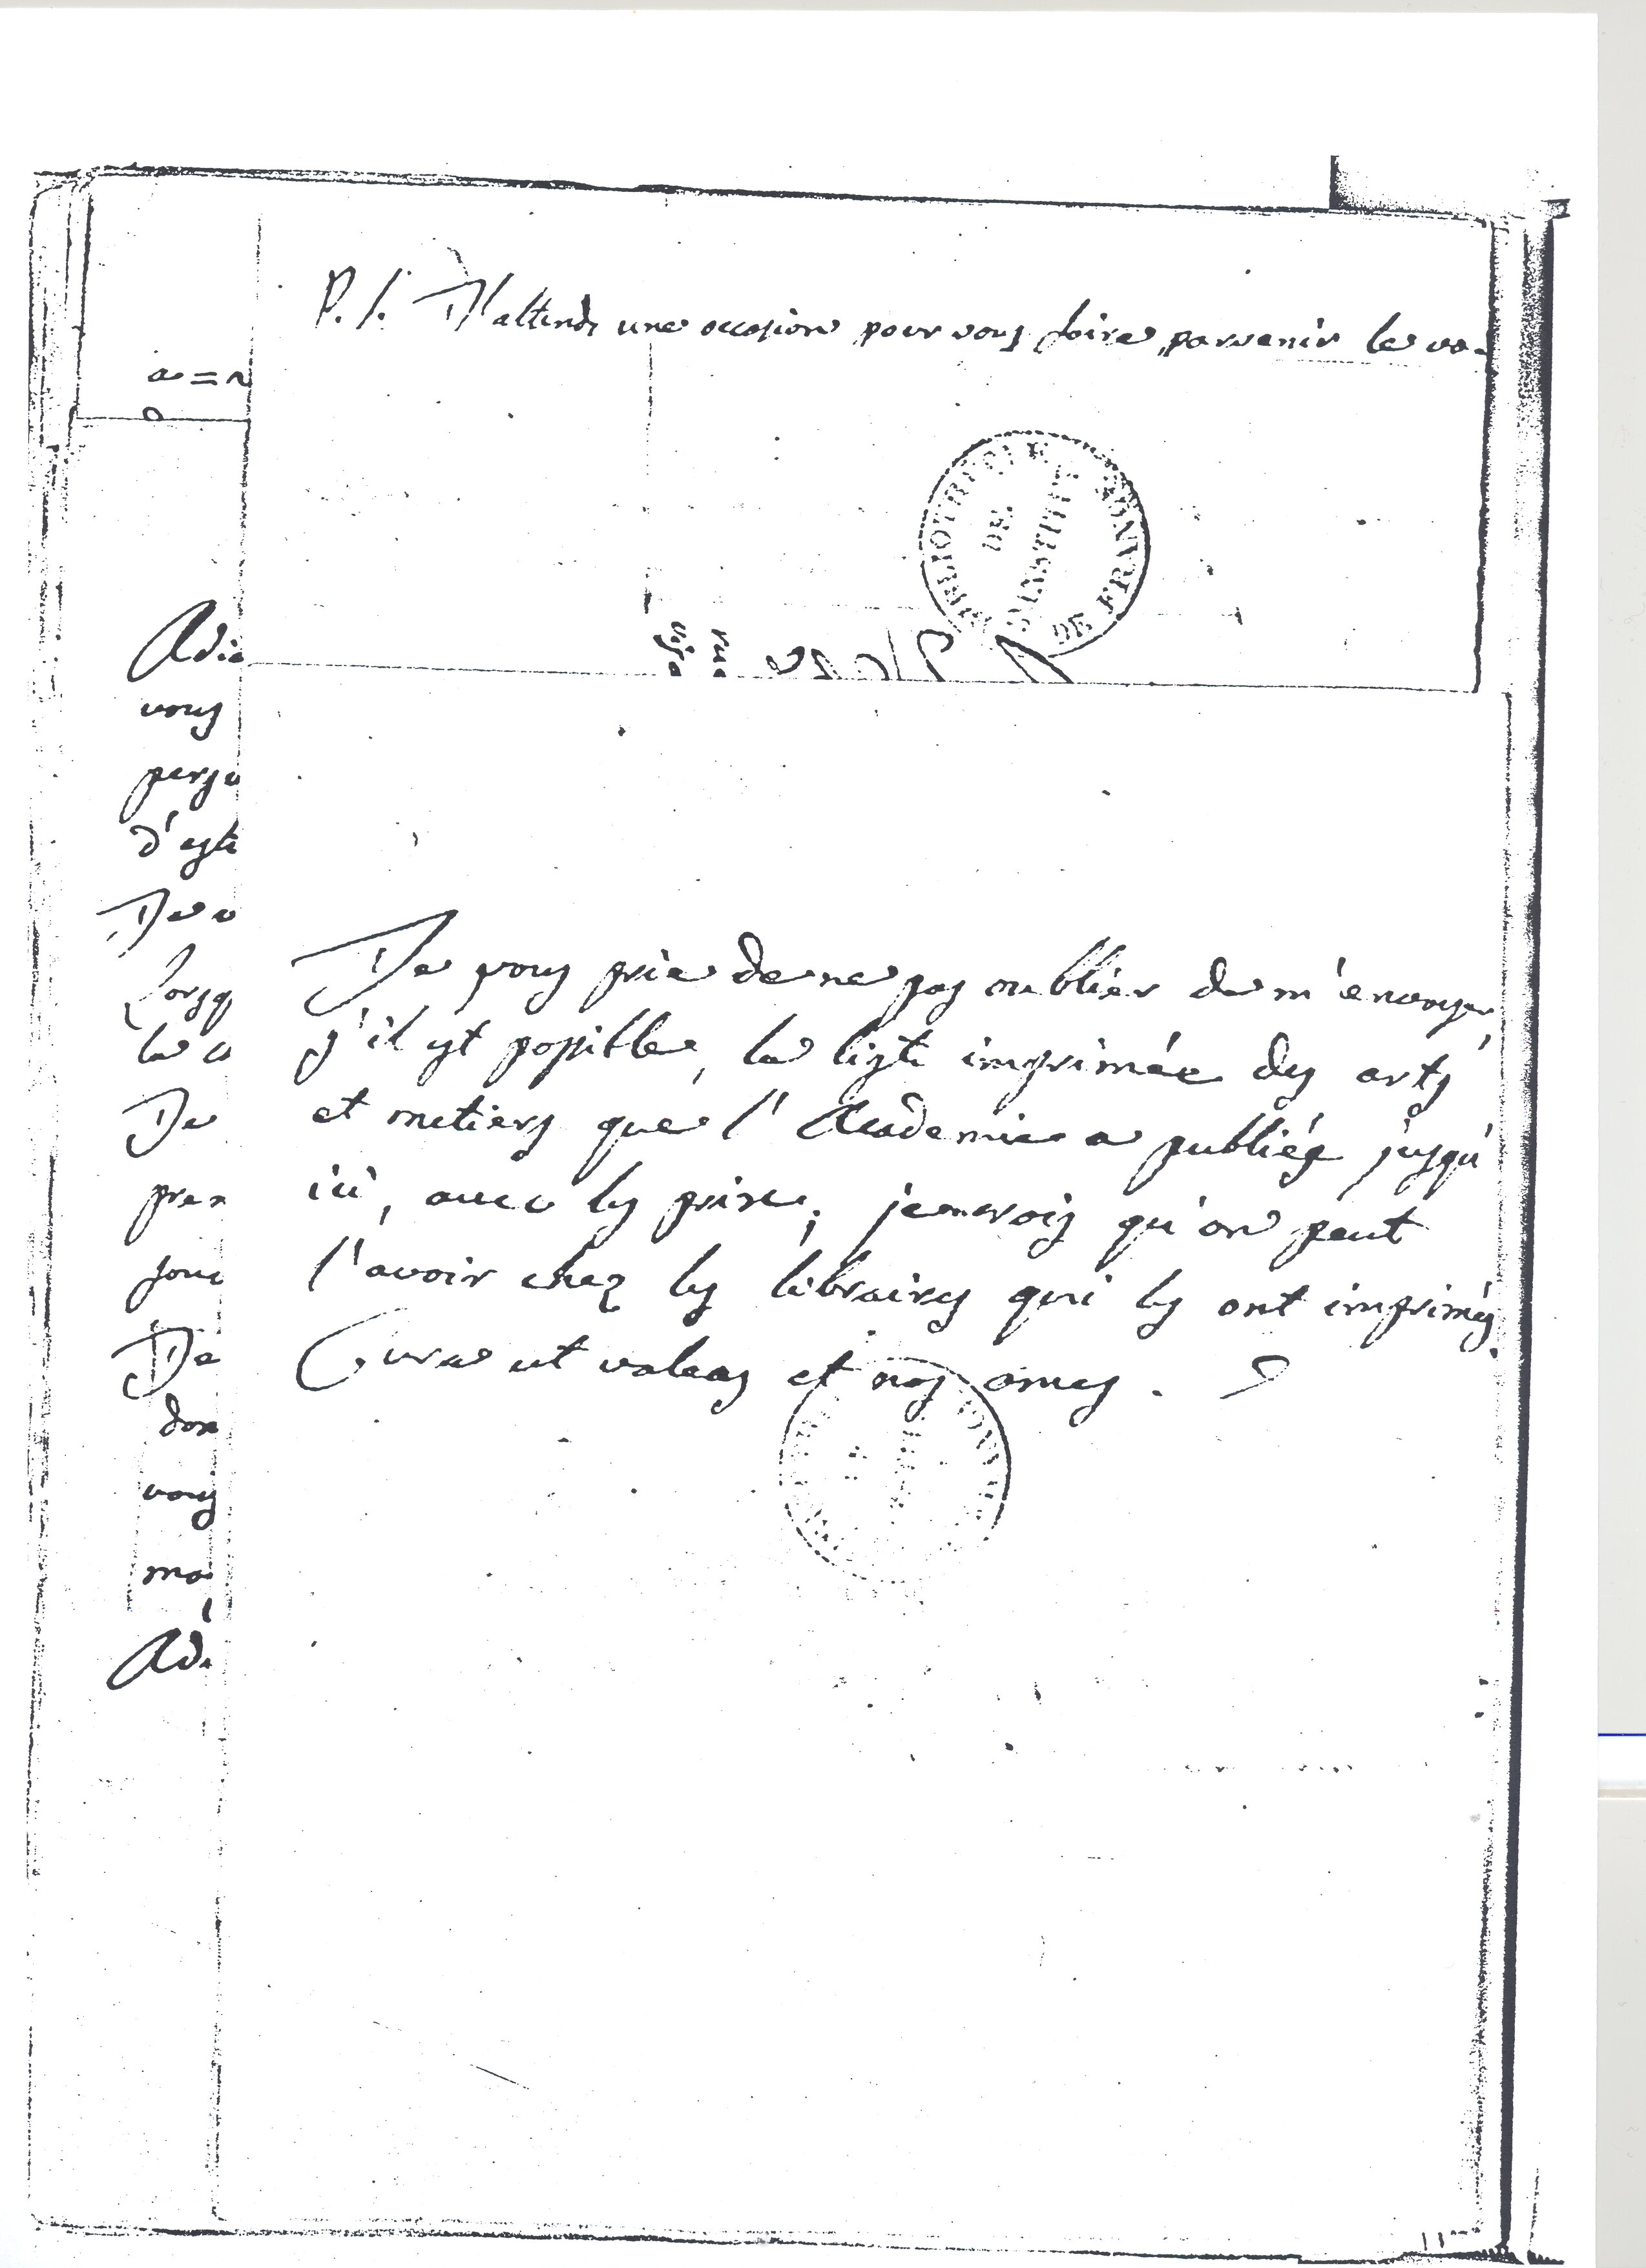 P. S. J'attends une occasion pour vous faire parvenir le vo-
BIBLIOTHEQUE DE L'INSTITUT DE FRANCE
Je vous prie de ne pas oublier de m'envoyer,
s'il est possible, la liste imprimée des arts
et metiers que l'Academie a publiés jusqu'
ici, avec les prix; je crois qu'on peut
l'avoir chez les libraires qui les ont imprimés.
Cura ut valeas et nos ames.
a = n
Adie
vous
persu
d'este
Je v
Lorsq
la c
Je
pren
sou
Je
don
vous
moi
Adi